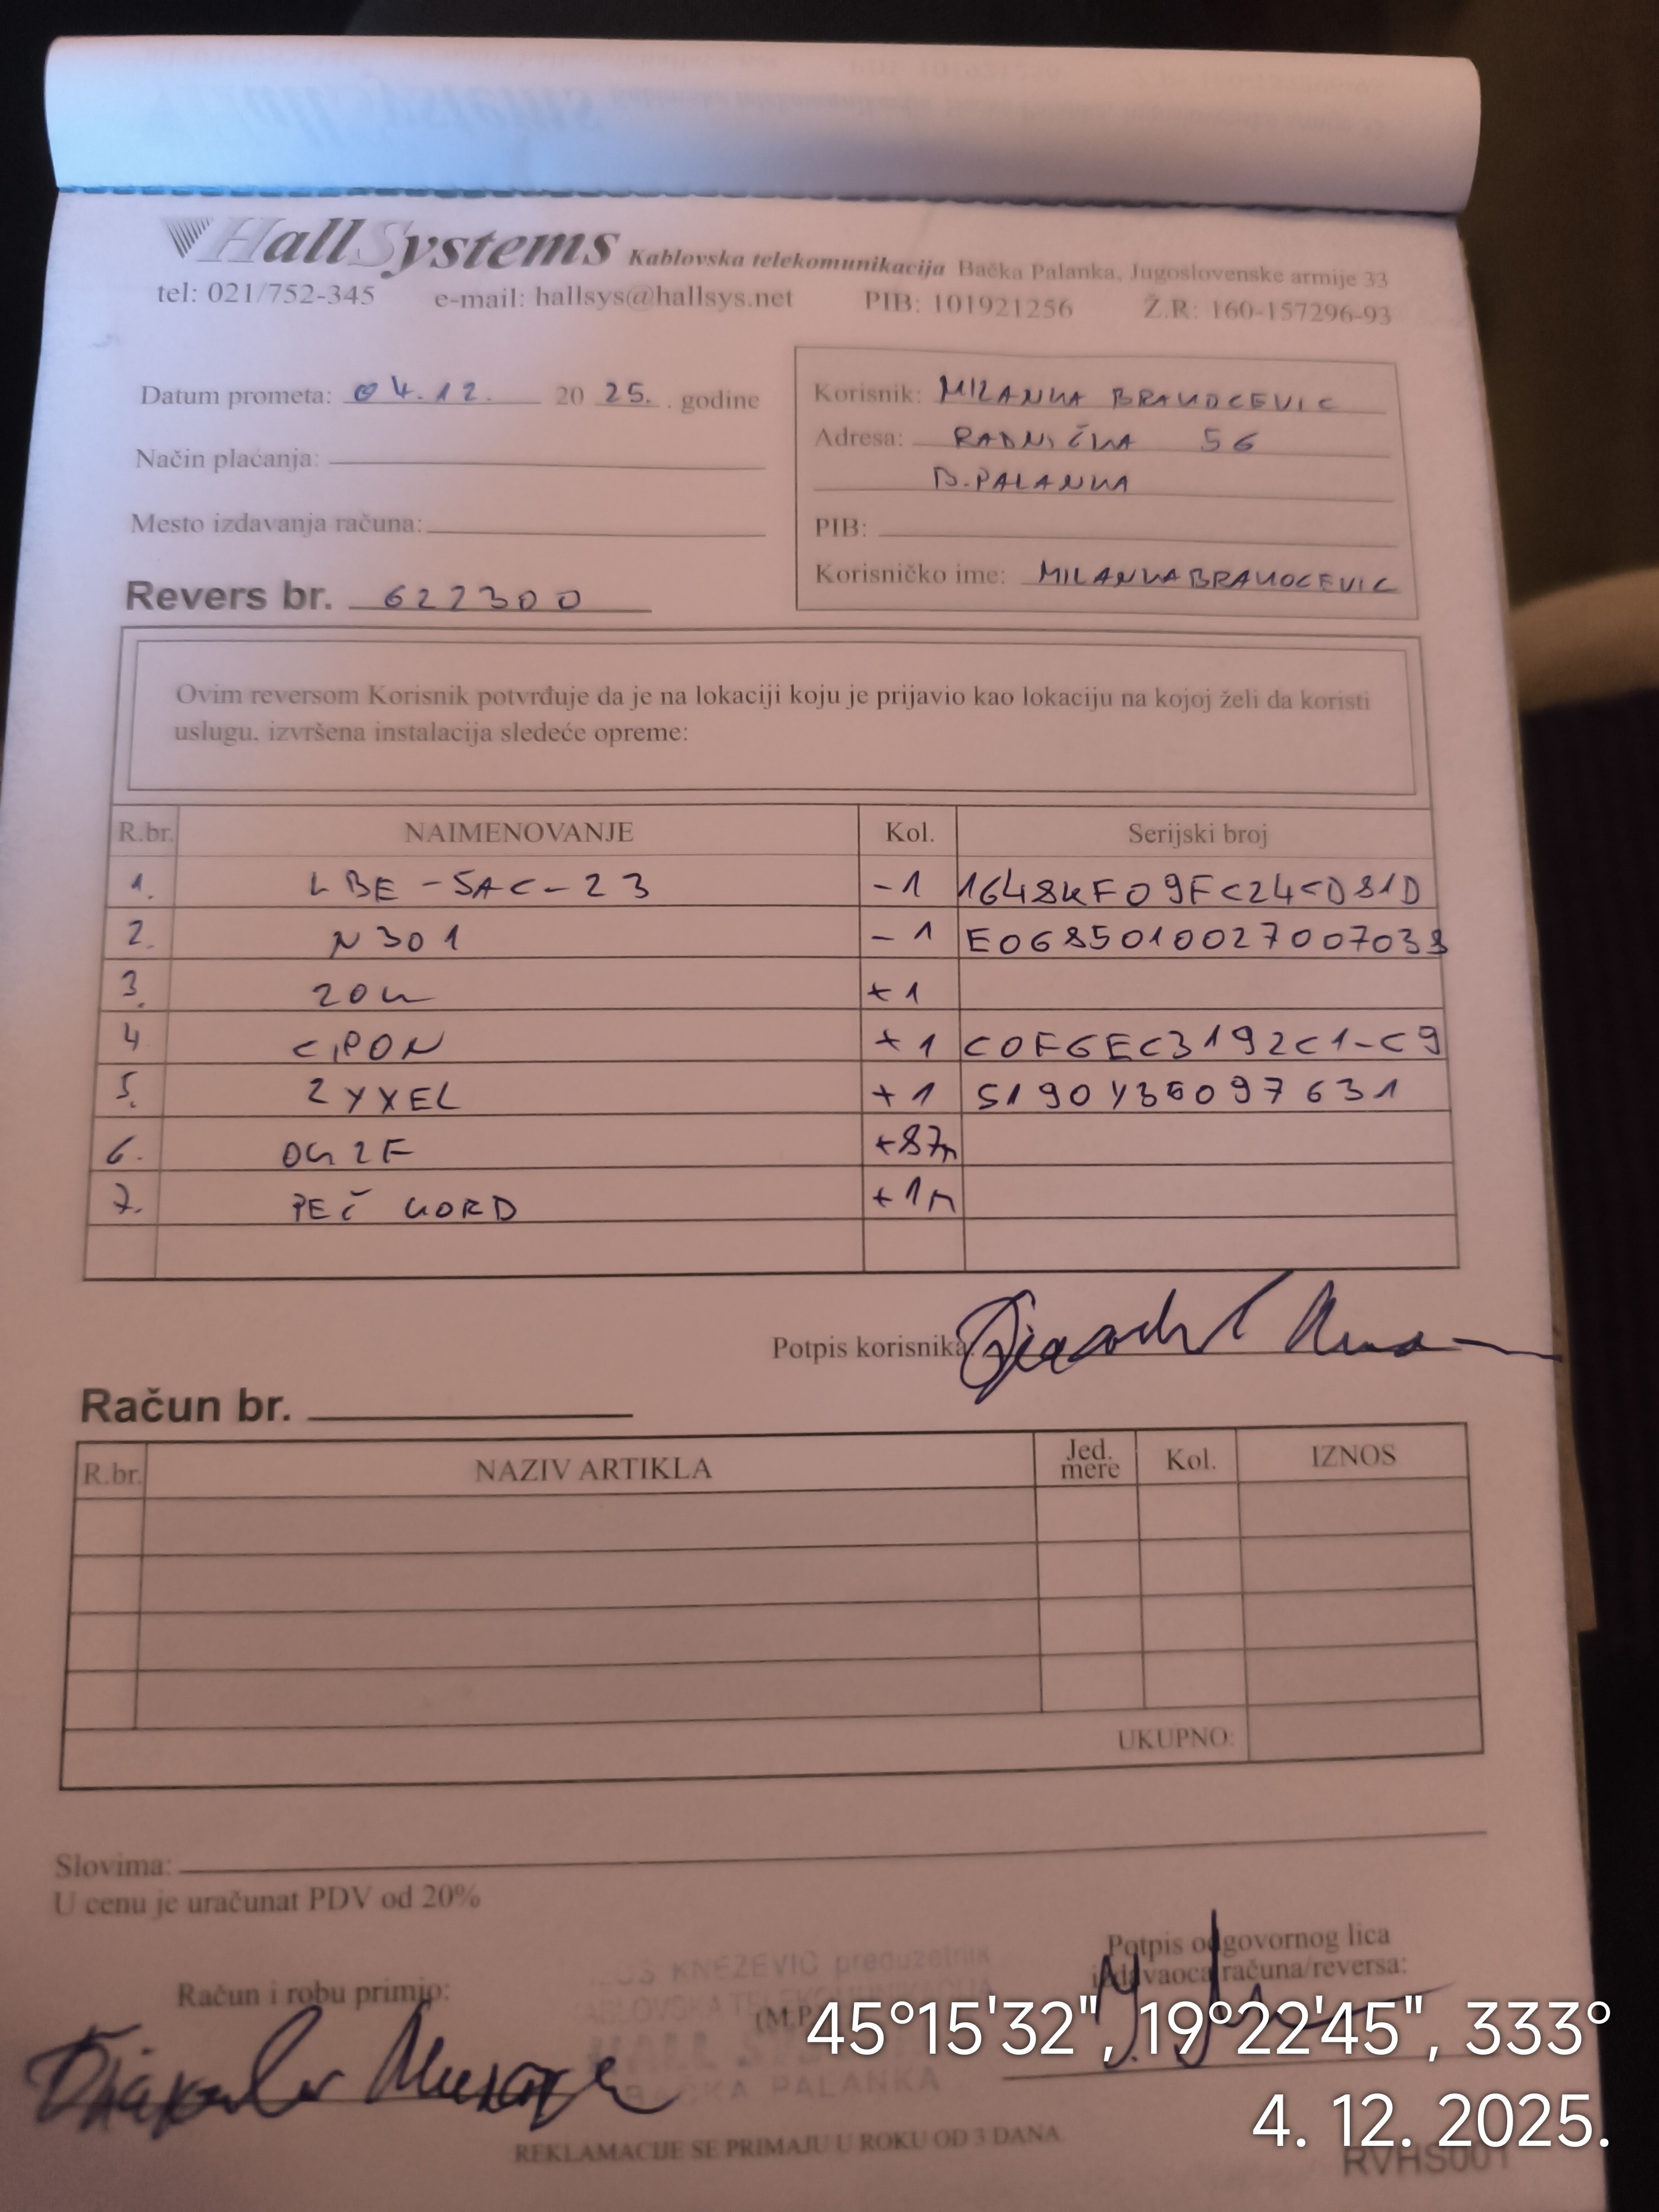 HallSystems Kablovska telekomunikacija Bačka Palanka, Jugoslovenske armije 33
tel: 021/752-345 e-mail: hallsys@hallsys.net PIB: 101921256 Ž.R: 160-157296-93
Datum prometa: 04.12. 20 25. . godine
Način plaćanja:
Mesto izdavanja računa:
Revers br. 622300
Korisnik: MILANKA BRAKOCEVIC
Adresa: RADNIČKA 56
B.PALANKA
PIB:
Korisničko ime: MILANKABRAKOCEVIC
Ovim reversom Korisnik potvrđuje da je na lokaciji koju je prijavio kao lokaciju na kojoj želi da koristi
uslugu, izvršena instalacija sledeće opreme:
R.br. NAIMENOVANJE Kol. Serijski broj
1. LBE-5AC-23 -1 1648KF09FC24CD81D
2. N301 -1 E0685010027007038
3. ZOK +1
4 GPON +1 C0F6EC3192C1-C9
5. ZYXEL +1 S190Y36097631
6. OK2F +87m
7. PEČ KORD +1m
Potpis korisnika:
Račun br.
R.br. NAZIV ARTIKLA Jed. mere Kol. IZNOS
UKUPNO:
Slovima:
U cenu je uračunat PDV od 20%
Račun i robu primio:
KNEZEVIC preduzetnik
(M.P
HALL
BAČKA PALANKA
Potpis odgovornog lica
izdavaoca računa/reversa:
REKLAMACIJE SE PRIMAJU U ROKU OD 3 DANA
RVHS001
45°15'32", 19°22'45", 333°
4. 12. 2025.